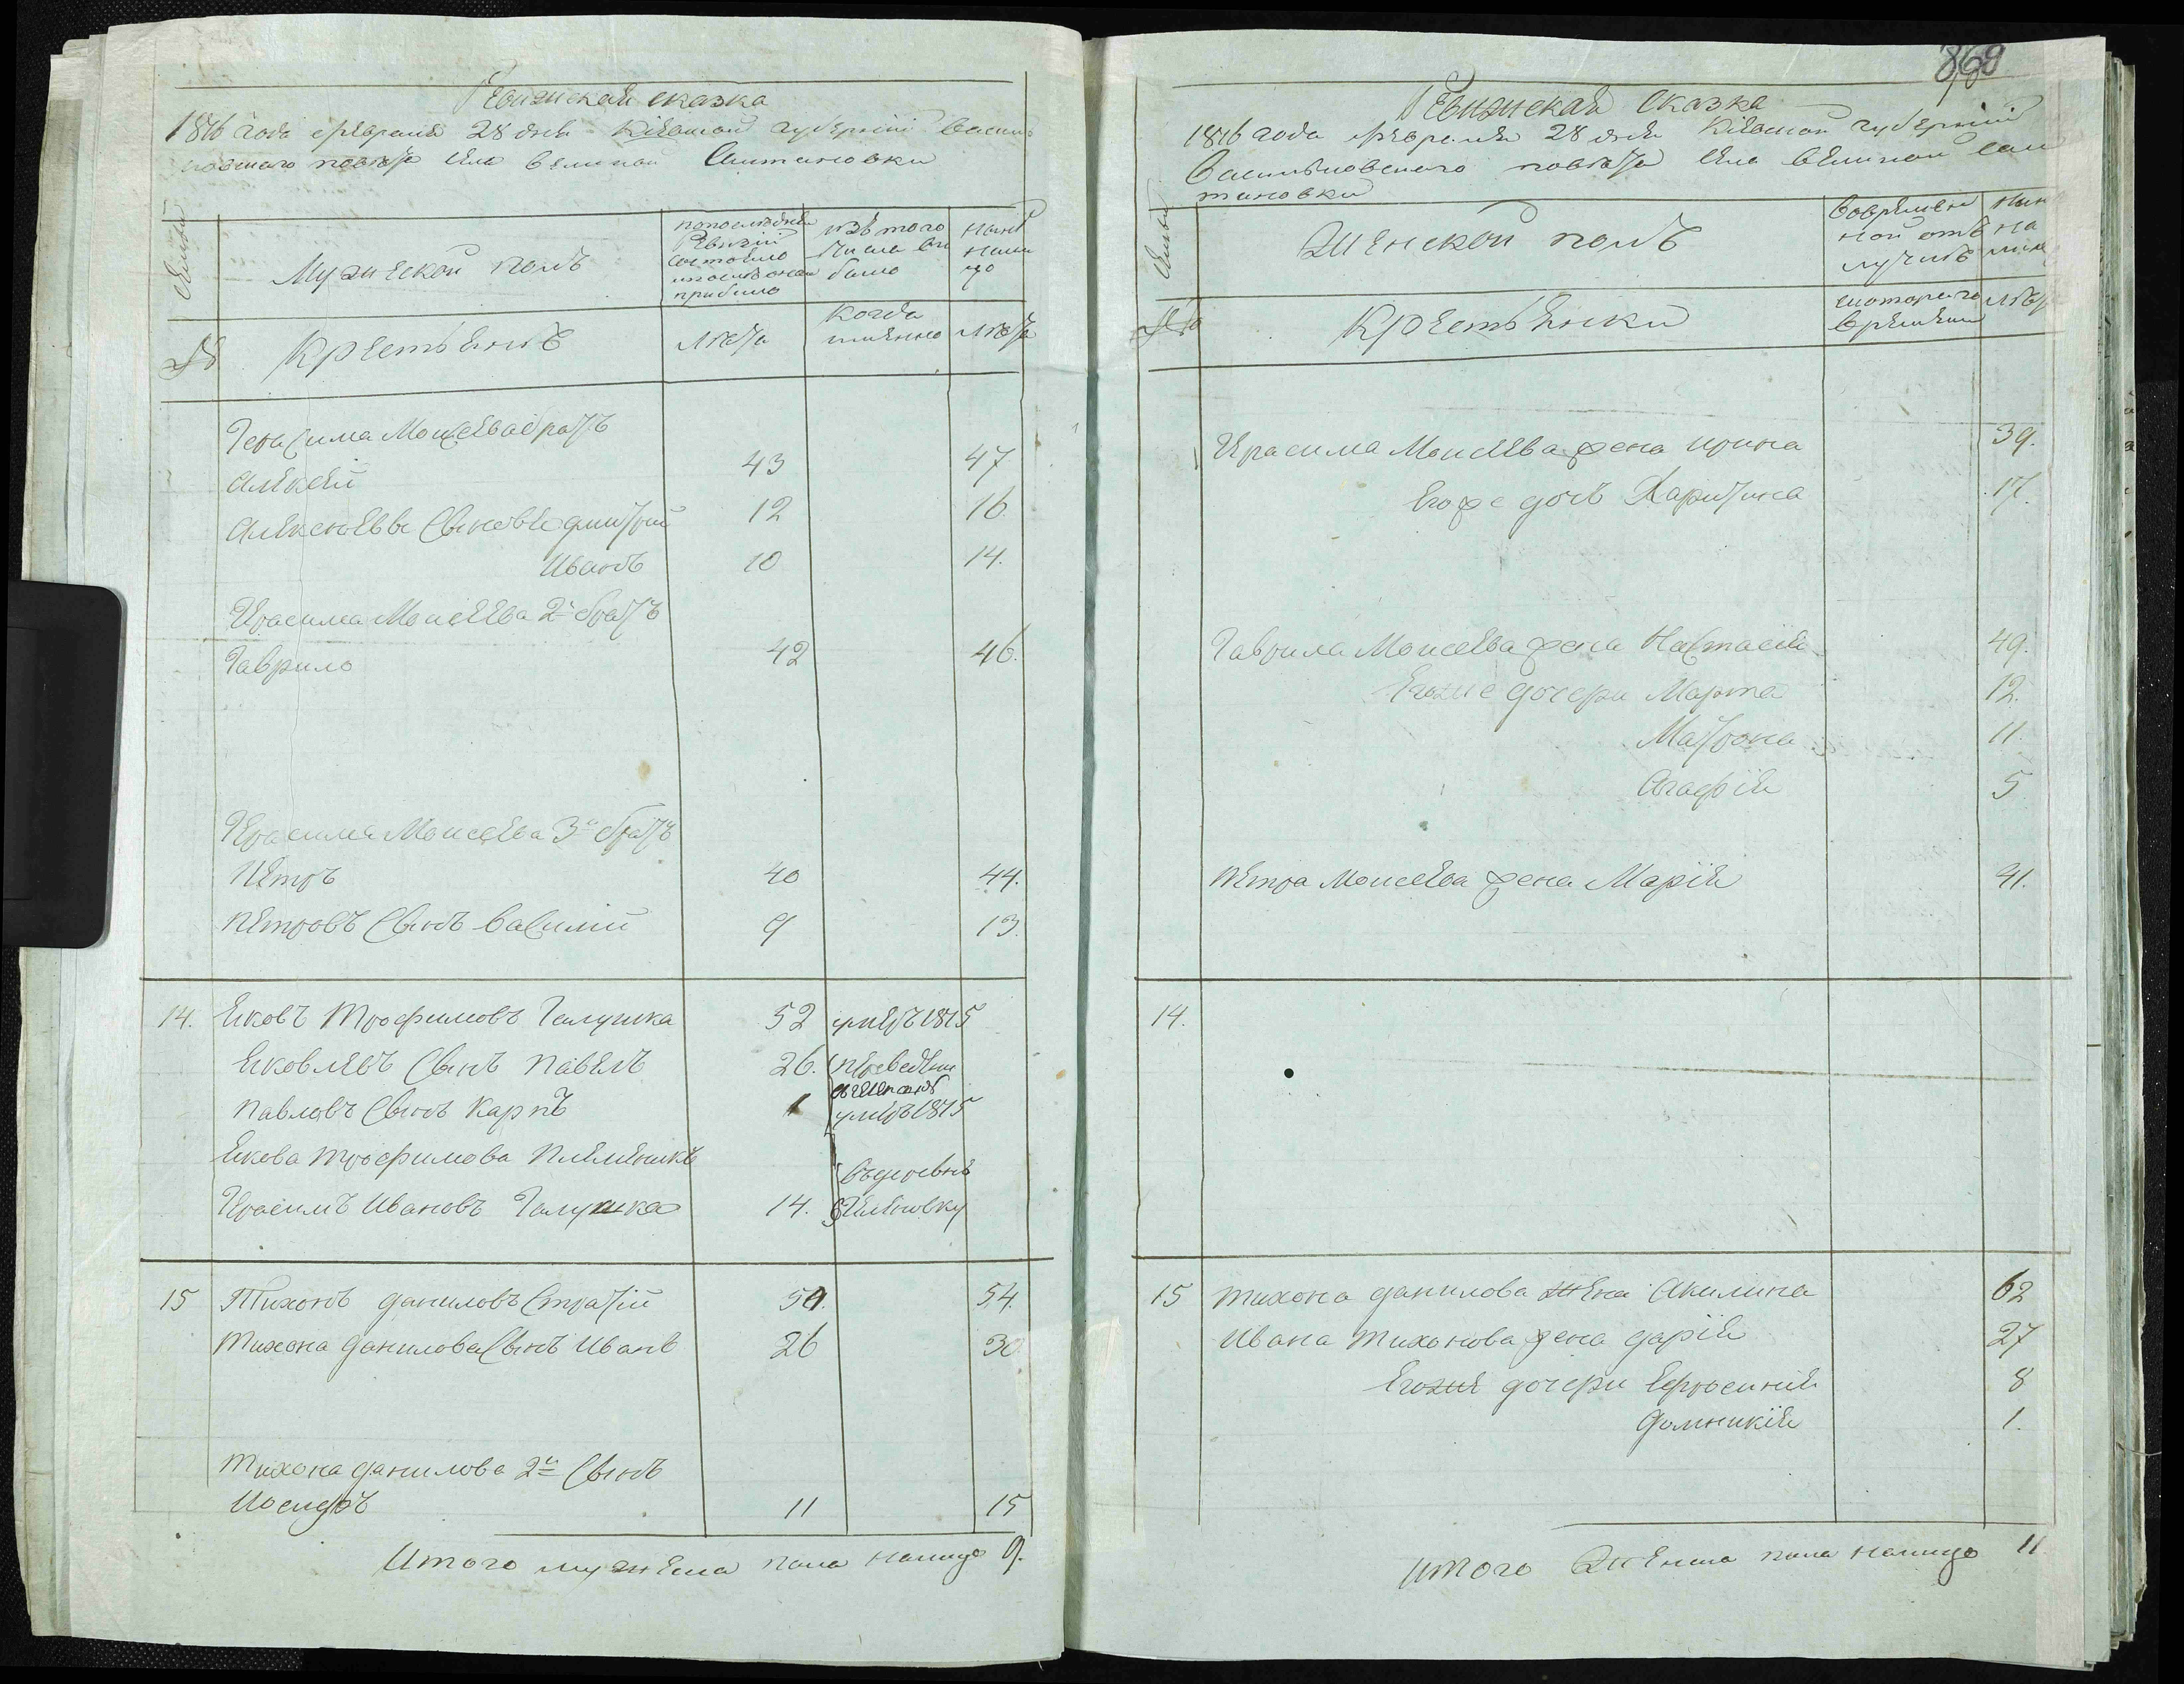 Ревизская сказка
1816 года февраля 28 дня Кіевской губерніи Василь
ковского повета села великой Салтановки
семьи
Мужеской полъ
по последней
Ревизіи
состояло
и после оной
прибыло
изъ того
числа вы
было
ныне
на ли
цо
№
Крестьяне
лета
когда
именно
лета
Герасима Моисеева братъ
Алексей 43 47
Алексеевы Сыновья дмитрій 12 16
Иванъ 10 14.
Герасима Моисеева 2й братъ
Гаврило 42 46.
Герасима Моисеева 3й братъ
Петръ 40 44.
Петровъ Сынъ Василій 9 13.
14. Яковъ Трофимовъ Галушка 52 умеръ 1815
Яковлевъ Сынъ Павелъ 26. переведены
Павловъ Сынъ Карпъ 1 умеръ 1815
Якова Трофимова племяникъ
Герасимъ Ивановъ Галушка 14.
15 Тихонъ даниловъ 50. 54.
Тихона данилова Сынъ Иванъ 26 30
Тихона данилова 2й Сынъ
11 15
Итого мужеска пола налицо 9.
868
Ревизская Сказка
1816 года февраля 28 дня Кіевской губерніи
Васильковского повета села великой сал
тановки
семьи
Женской полъ
во времен
ной отъ
лучке
ныне
на
лицо
№
Крестьянки
с котораго
времени
лета
Герасима Моисеева жена ирина 39.
Его же дочь Харитина 17.
Гаврила Моисеева жена Настасія 49.
Егоже дочери Марта 12.
Матрона 11.
Агафія 5
Петра Моисеева жена Марія 41.
14.
15 Тихона данилова жена Акилина 62
Ивана Тихонова жена дарія 27
Егоже дочери Ефросинія 8
Домникія 1.
Итого Женска пола налицо 11